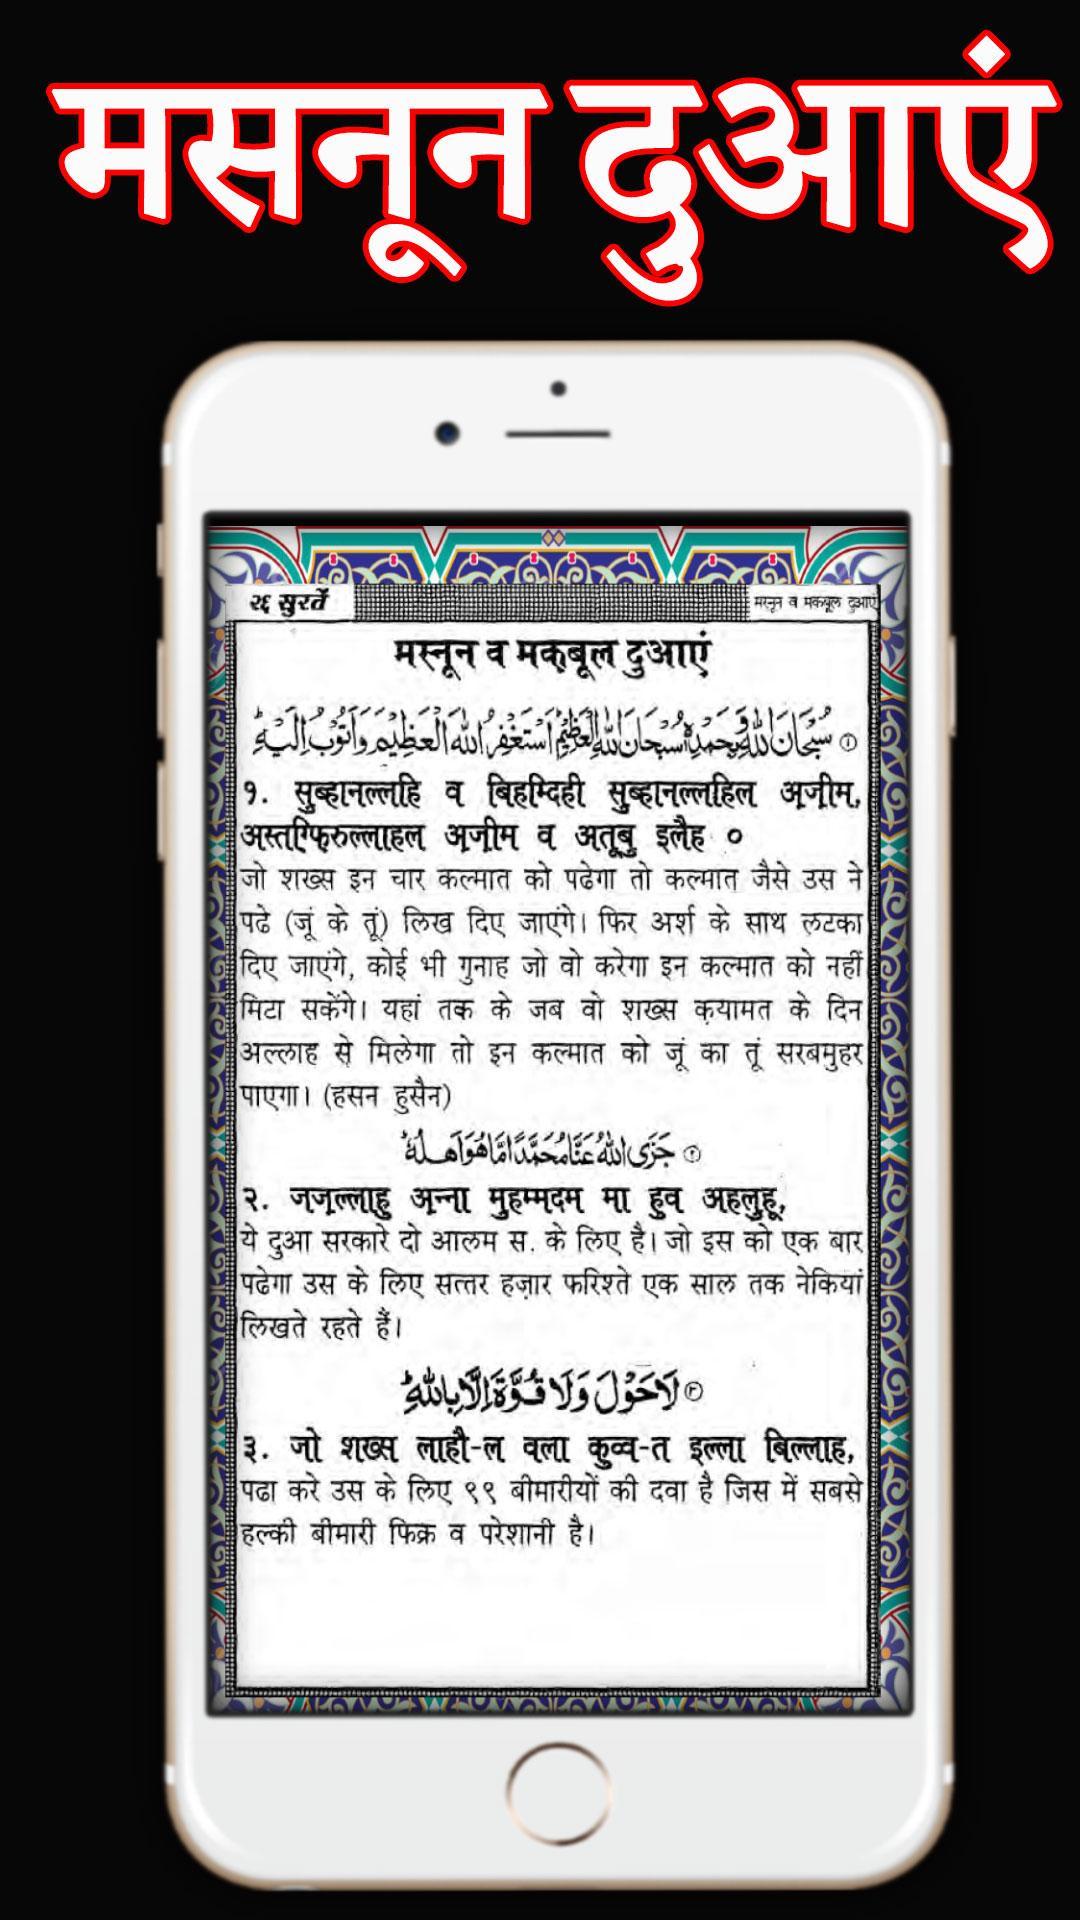 मसनून दुआएं
२६ सुरतें
मस्नून व मकबूल दुआएं
मस्नून व मक़बूल दुआएं
① سُبْحَانَ اللّٰهِ وَبِحَمْدِهٖ سُبْحَانَ اللّٰهِ الْعَظِيْمِ اَسْتَغْفِرُ اللّٰهَ الْعَظِيْمَ وَاَتُوْبُ اِلَيْهِ ؕ
१. सुब्हानल्लहि व बिहम्दिही सुब्हानल्लहिल अ़ज़ीम,
अस्तग़्फ़िरुल्लाहल अ़ज़ीम व अतूबु इलैह ०
जो शख्स इन चार कल्मात को पढेगा तो कल्मात जैसे उस ने
पढे (जूं के तूं) लिख दिए जाएंगे। फिर अर्श के साथ लटका
दिए जाएंगे, कोई भी गुनाह जो वो करेगा इन कल्मात को नहीं
मिटा सकेंगे। यहां तक के जब वो शख्स क़यामत के दिन
अल्लाह से़ मिलेगा तो इन कल्मात को जूं का तूं सरबमुहर
पाएगा। (हसन हुसैन)
② جَزَى اللّٰهُ عَنَّا مُحَمَّدًا مَّا هُوَ اَهْلُهٗ ؕ
२. जज़ल्लाहु अ़न्ना मुहम्मदम मा हुव अहलुहू,
ये दुआ सरकारे दो आलम स. के लिए है। जो इस को एक बार
पढेगा उस के लिए सत्तर हज़ार फरिश्ते एक साल तक नेकियां
लिखते रहते हैं।
③ لَا حَوْلَ وَلَا قُوَّةَ اِلَّا بِاللّٰهِ ؕ
३. जो शख़्स लाहौ-ल वला कुव्व-त इल्ला बिल्लाह,
पढा करे उस के लिए ९९ बीमारीयों की दवा है जिस में सबसे
हल्की बीमारी फिक्र व परेशानी है।